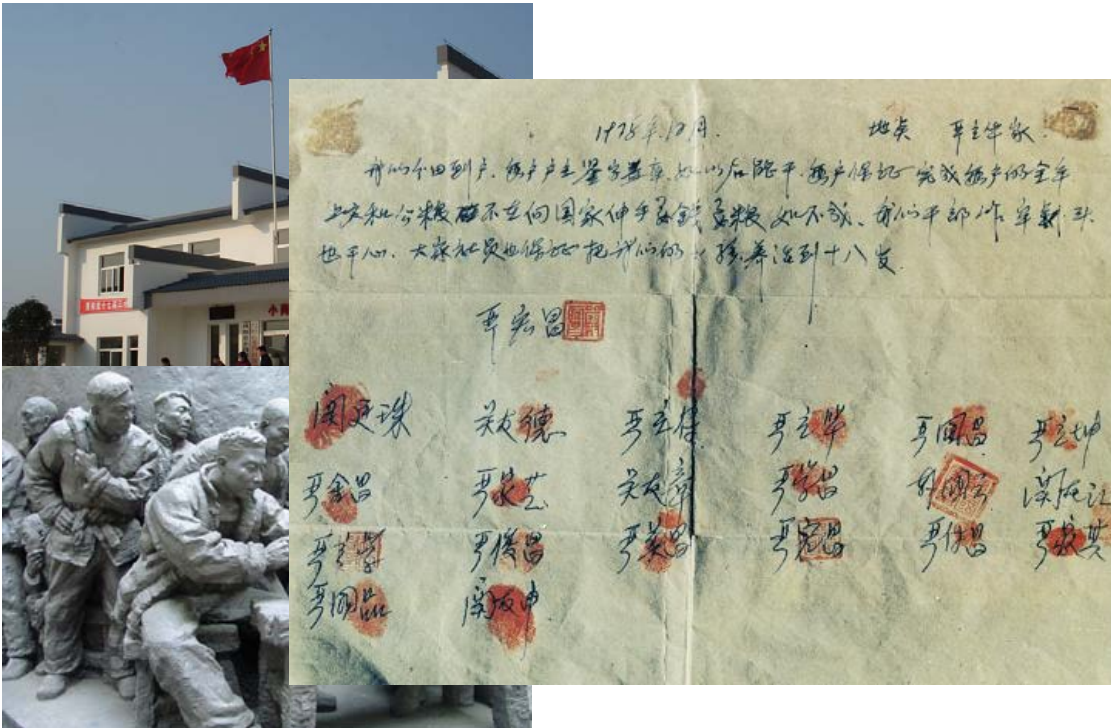 小岗
1978年12月. 地点 严立华家.
我们分田到户, 每户户主签字盖章, 如以后能干, 每户保证完成每户的全年
上交和公粮 不在向国家伸手要钱要粮 如不成, 我们干部作牢刹头
也干心, 大家社员也保证把我们的小孩养活到十八岁
严宏昌
关廷珠 关友德 严立符 严立华 严国昌 严立坤
严金昌 严家芝 关友章 严学昌 韩国云 关友江
严立学 严俊昌 严美昌 严宏昌 严付昌 严家其
严国品 关友申